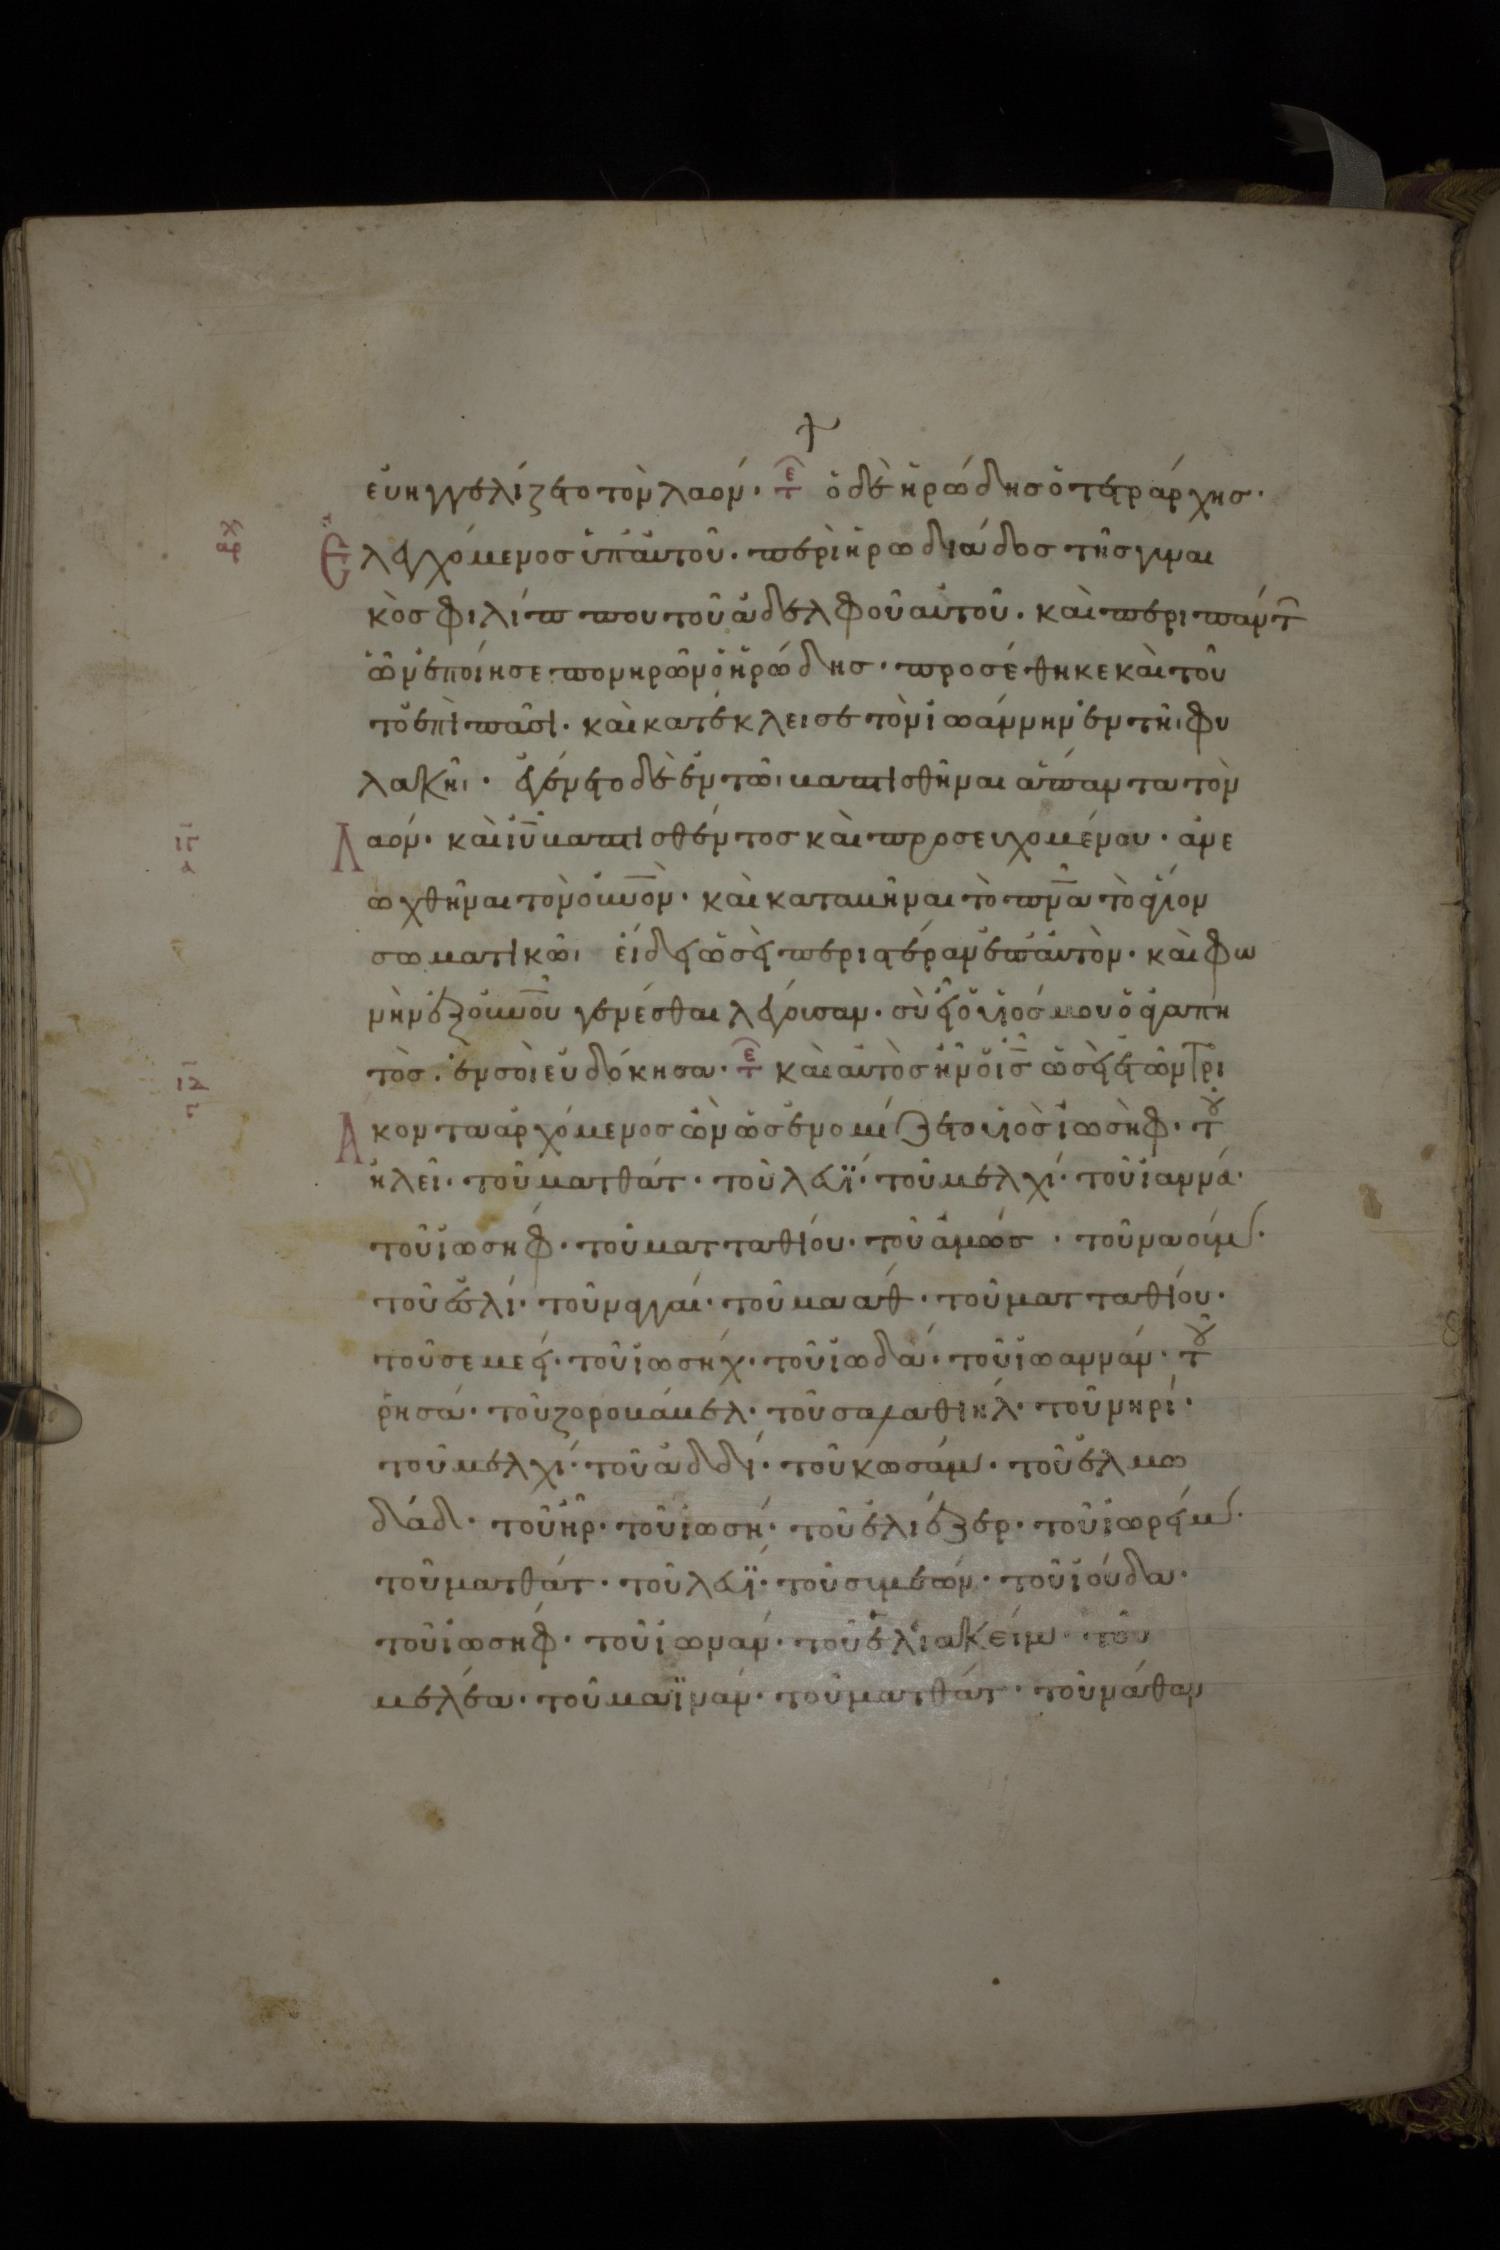 εὐηγγελίζετο τὸν λαόν· ὁ δὲ ἡρώδησ ὁ τετράρχησ·
Ἐλεγχόμενοσ ὑπ' αὐτοῦ· περὶ ἡρωδιάδοσ τῆσ γυναι
κὸσ φιλίππου τοῦ ἀδελφοῦ αὐτοῦ· καὶ περὶ πάντ
ὧν ἐποίησε πονηρῶν ὁ ἡρώδησ· προσέθηκε καὶ τοῦ
το ἐπὶ πᾶσι· καὶ κατέκλεισε τὸν ἰωάννην ἐν τῆι φυ
λακῆι· ἐγένετο δὲ ἐν τῶι βαπτισθῆναι ἅπαντα τὸν
Λαόν· καὶ ἰῡ βαπτισθέντοσ καὶ προσευχομένου· ἀνε
ωχθῆναι τὸν οὐν̅ο̅ν· καὶ καταβῆναι τὸ πν̅α τὸ ἅγιον
σωματικῶι εἴδει ὡσεὶ περιστερὰν ἐπ' αὐτὸν· καὶ φω
νὴν ἐξ οὐν̅ο̅υ γενέσθαι λέγουσαν· σὺ εἶ ὁ υἱόσ μου ὁ ἀγαπη
τὸσ· ἐν σοὶ εὐδόκησα· καὶ αὐτὸσ ἦν ὁ ἰσ̅ ὡσεὶ ἐτῶν τρι
Ακοντα ἀρχόμενοσ ὢν ὡσ ἐνομίζετο υἱὸσ ἰωσὴφ· τοῦ
ἡλεῖ· τοῦ ματθάτ· τοῦ λευΐ· τοῦ μελχί· τοῦ ἰαννά·
τοῦ ἰωσήφ· τοῦ ματταθίου· τοῦ ἀμώσ· τοῦ ναούμ·
τοῦ ἐσλί· τοῦ ναγγαί· τοῦ μαάθ· τοῦ ματταθίου·
τοῦ σεμεεί· τοῦ ἰωσήχ· τοῦ ἰωδά· τοῦ ἰωαννάν· τοῦ
ῥησά· τοῦ ζοροβάβελ· τοῦ σαλαθιήλ· τοῦ νηρί·
τοῦ μελχί· τοῦ ἀδδί· τοῦ κωσάμ· τοῦ ἐλμω
δάδ· τοῦ ἤρ· τοῦ ἰωσή· τοῦ ἐλιέζερ· τοῦ ἰωρείμ·
τοῦ ματθάτ· τοῦ λευΐ· τοῦ συμεών· τοῦ ἰούδα·
τοῦ ἰωσήφ· τοῦ ἰωνάν· τοῦ ἐλιακείμ· τοῦ
μελέα· τοῦ μαϊνάν· τοῦ ματθάτ· τοῦ νάθαν